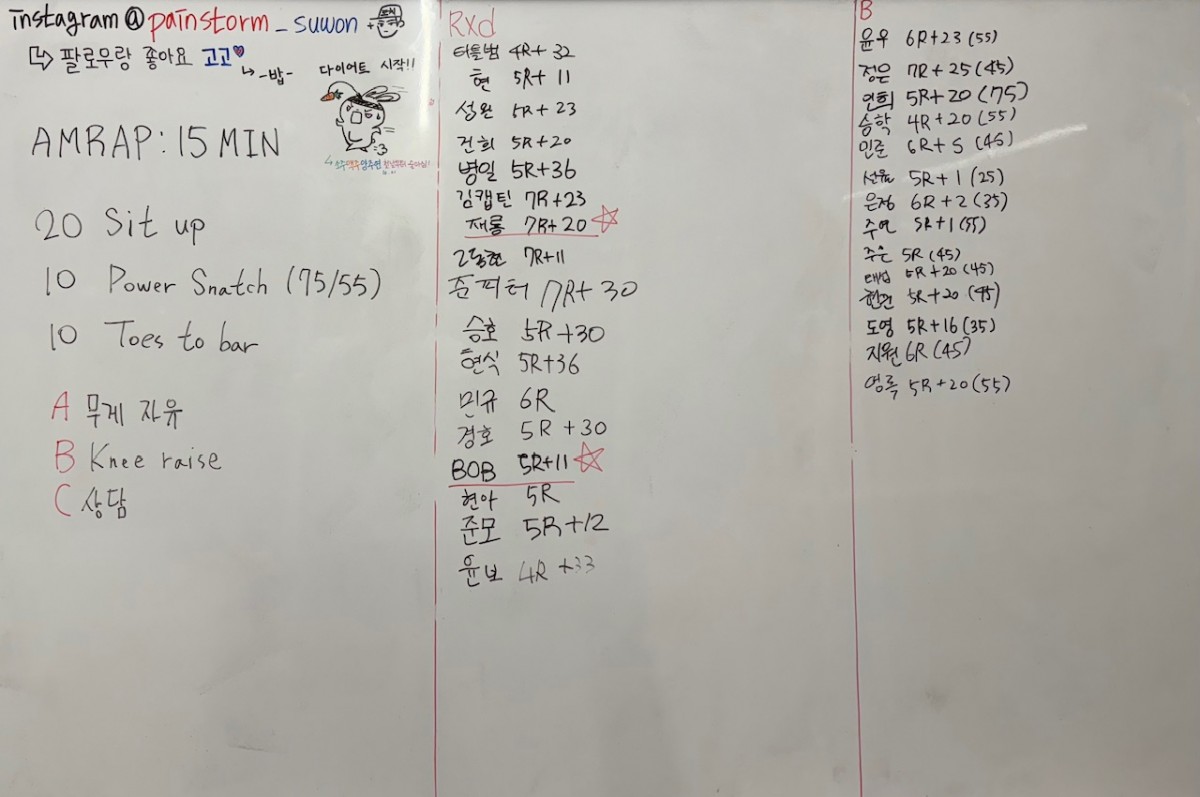 instagram@painstorm_suwon
팔로우랑 좋아요 고고
-밥-
다이어트 시작!!
AMRAP: 15 MIN
20 Sit up
10 Power Snatch (75/55)
10 Toes to bar
A 무게 자유
B Knee raise
C 상담
Rxd
4R+32
현 5R+11
성완 5R+23
건희 5R+20
병일 5R+36
김캡틴 7R+23
재롱 7R+20
7R+11
준피터 7R+30
승호 5R+30
현식 5R+36
민규 6R
경호 5R+30
BOB 5R+11
현아 5R
준모 5R+12
윤보 4R+33
B
윤우 6R+23 (55)
정은 7R+25 (45)
연희 5R+20 (75)
승학 4R+20 (55)
인준 6R+5 (45)
5R+1 (25)
은정 6R+2 (35)
주연 5R+1 (55)
주은 5R (45)
태섭 5R+20 (45)
5R+20 (45)
도영 5R+16 (35)
지원 6R (45)
영록 5R+20 (55)